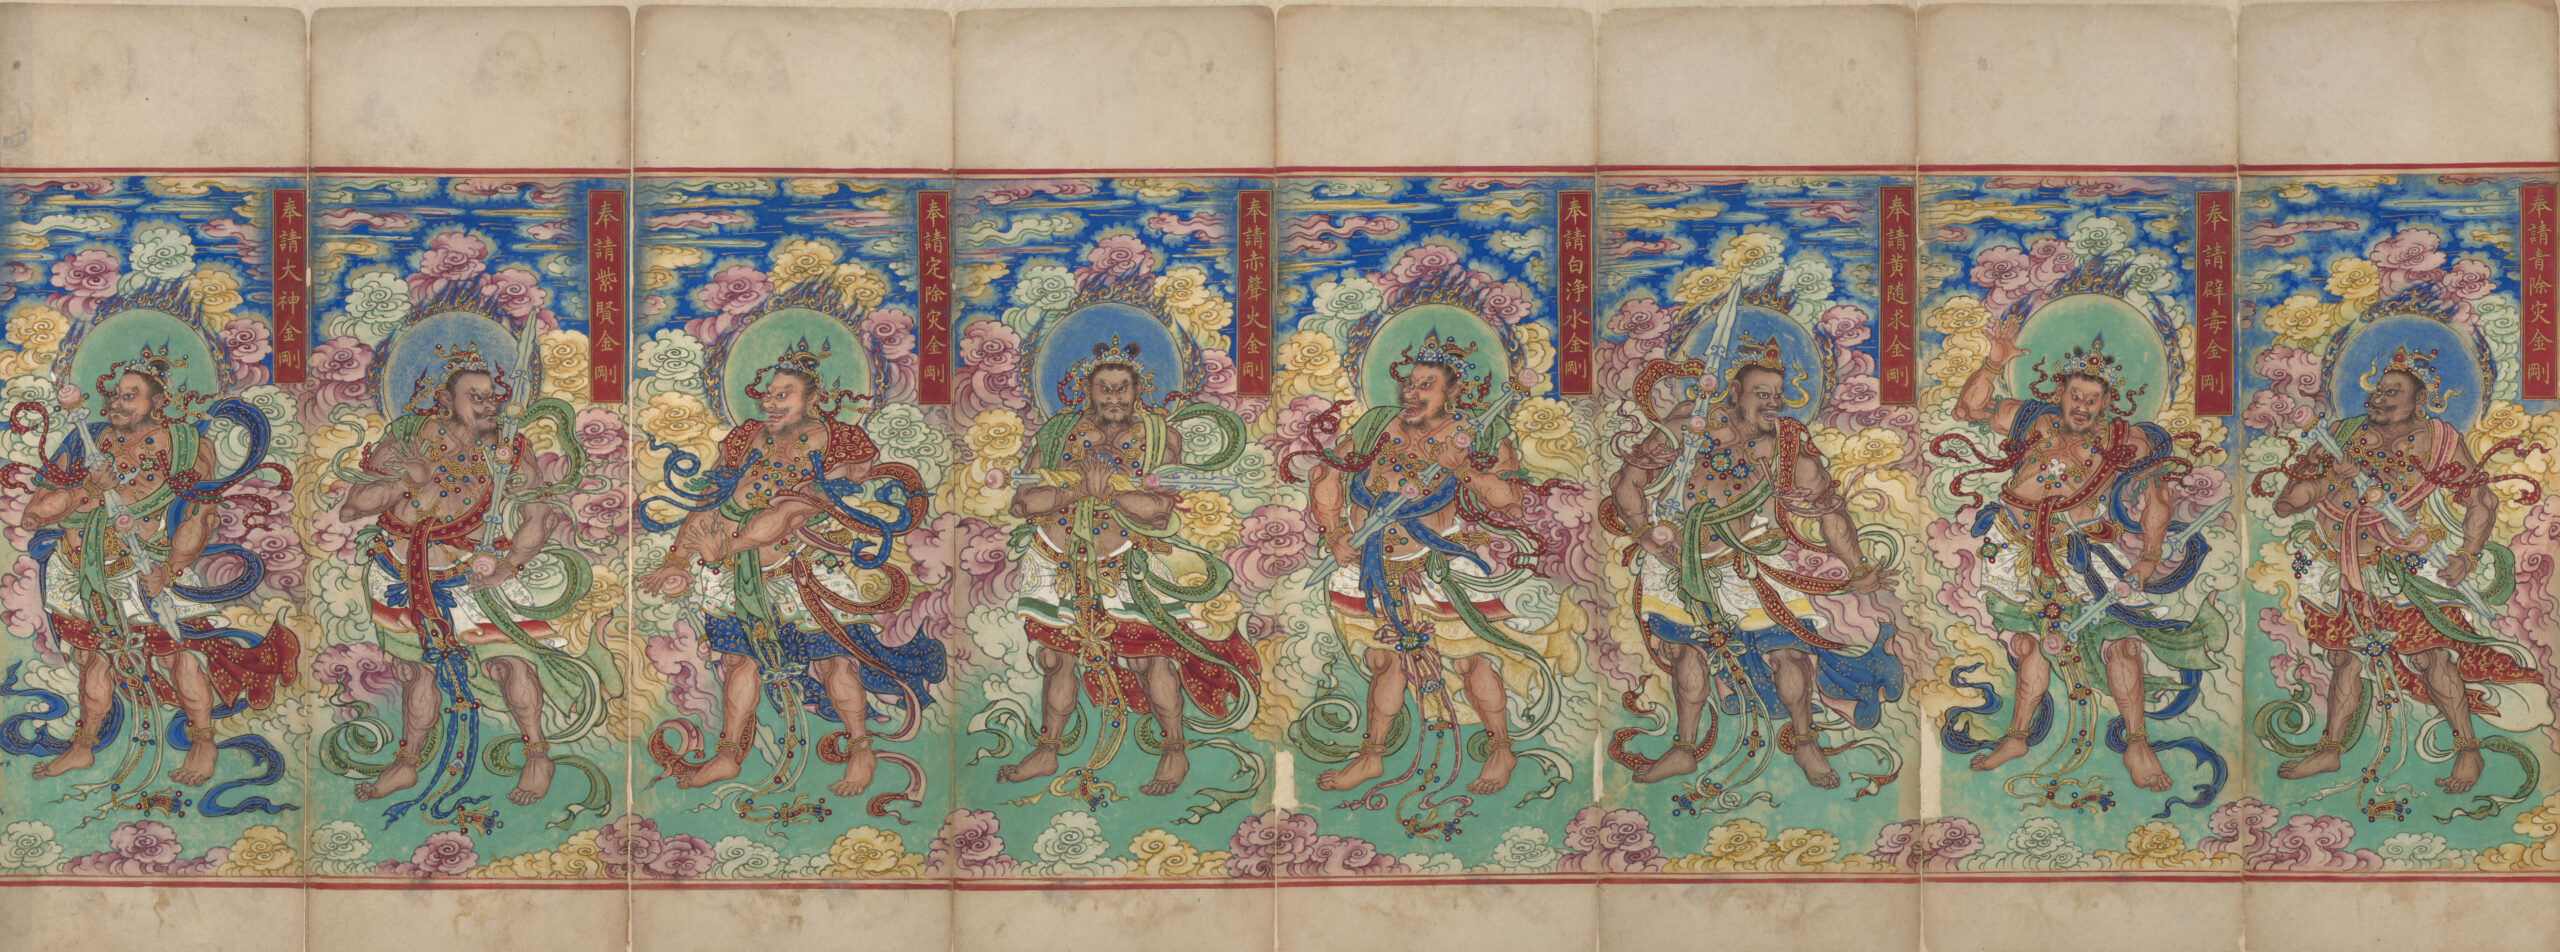 奉請青除灾金剛
奉請辟毒金剛
奉請黄随求金剛
奉請白浄水金剛
奉請赤聲火金剛
奉請定除灾金剛
奉請紫賢金剛
奉請大神金剛